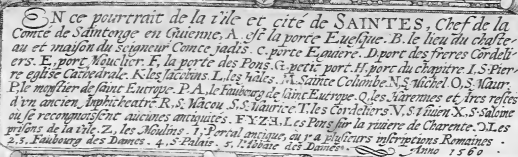 EN ce pourtrait de la ville et cité de SAINTES, Chef de la
Comté de Saintonge en Guienne, A. est la porte Euesque. B. le lieu du chaste-
au et maison du seigneur Comte jadis. C. porte Eguiere. D. port des freres Cordeli-
ers. E, port Mouclier. F, la porte des Pons. G. petit port. H, port du chapitre. I. S. Pier-
re eglise Cathedrale. K. les Iacobins. L. les hales. M. Sainte Columbe. N, S. Michel O, S. Maur
P, le monstier de saint Eutrope. P. A, le Fauxbourg de saint Eutrope. Q. les Harennes et Arcs restes
d'vn ancien Amphitheatre R, S. Macou S. S. Maurice T. les Cordeliers V. S. Viuien X. S. Salome
ou se recongnoissent aucunes antiquités. F, Y, Z, E, Les Pons sur la riuiere de Charente. Les
prisons de la vile. Z, les Moulins. 1, Portal antique, ou y a plusieurs inscriptions Romaines
2, 3, Faubourg des Dames. 4. S. Palais. 5. l'Abbaie des Dames. Anno 1560